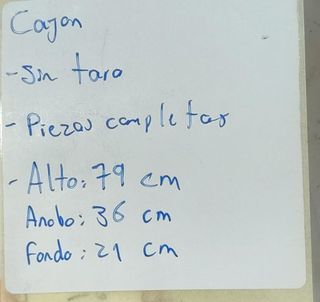 Cajon
- Sin tara
- Piezas completas
- Alto: 79 cm
Ancho: 36 cm
Fondo: 21 cm